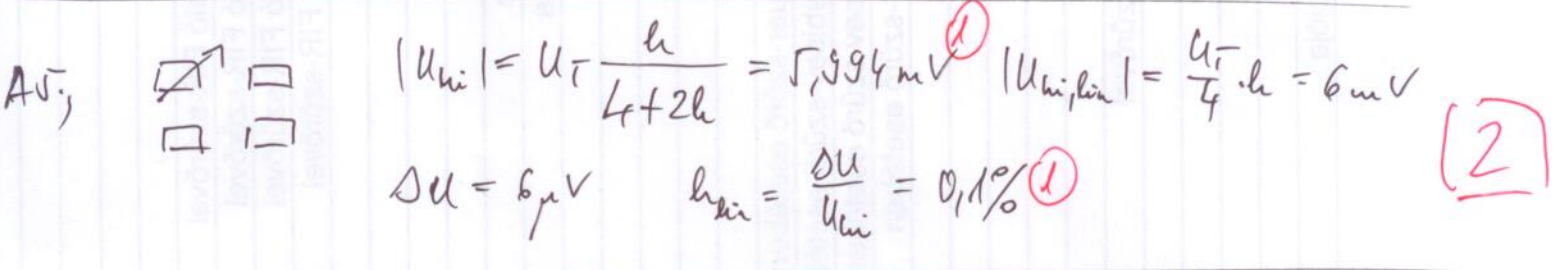 A5.,  |U_ki| = U_T h/(4+2h) = 5,994 mV (1)  |U_ki,lin| = U_T/4 · h = 6 mV
ΔU = 6 μV  h_lin = ΔU/U_ki = 0,1% (1)
2